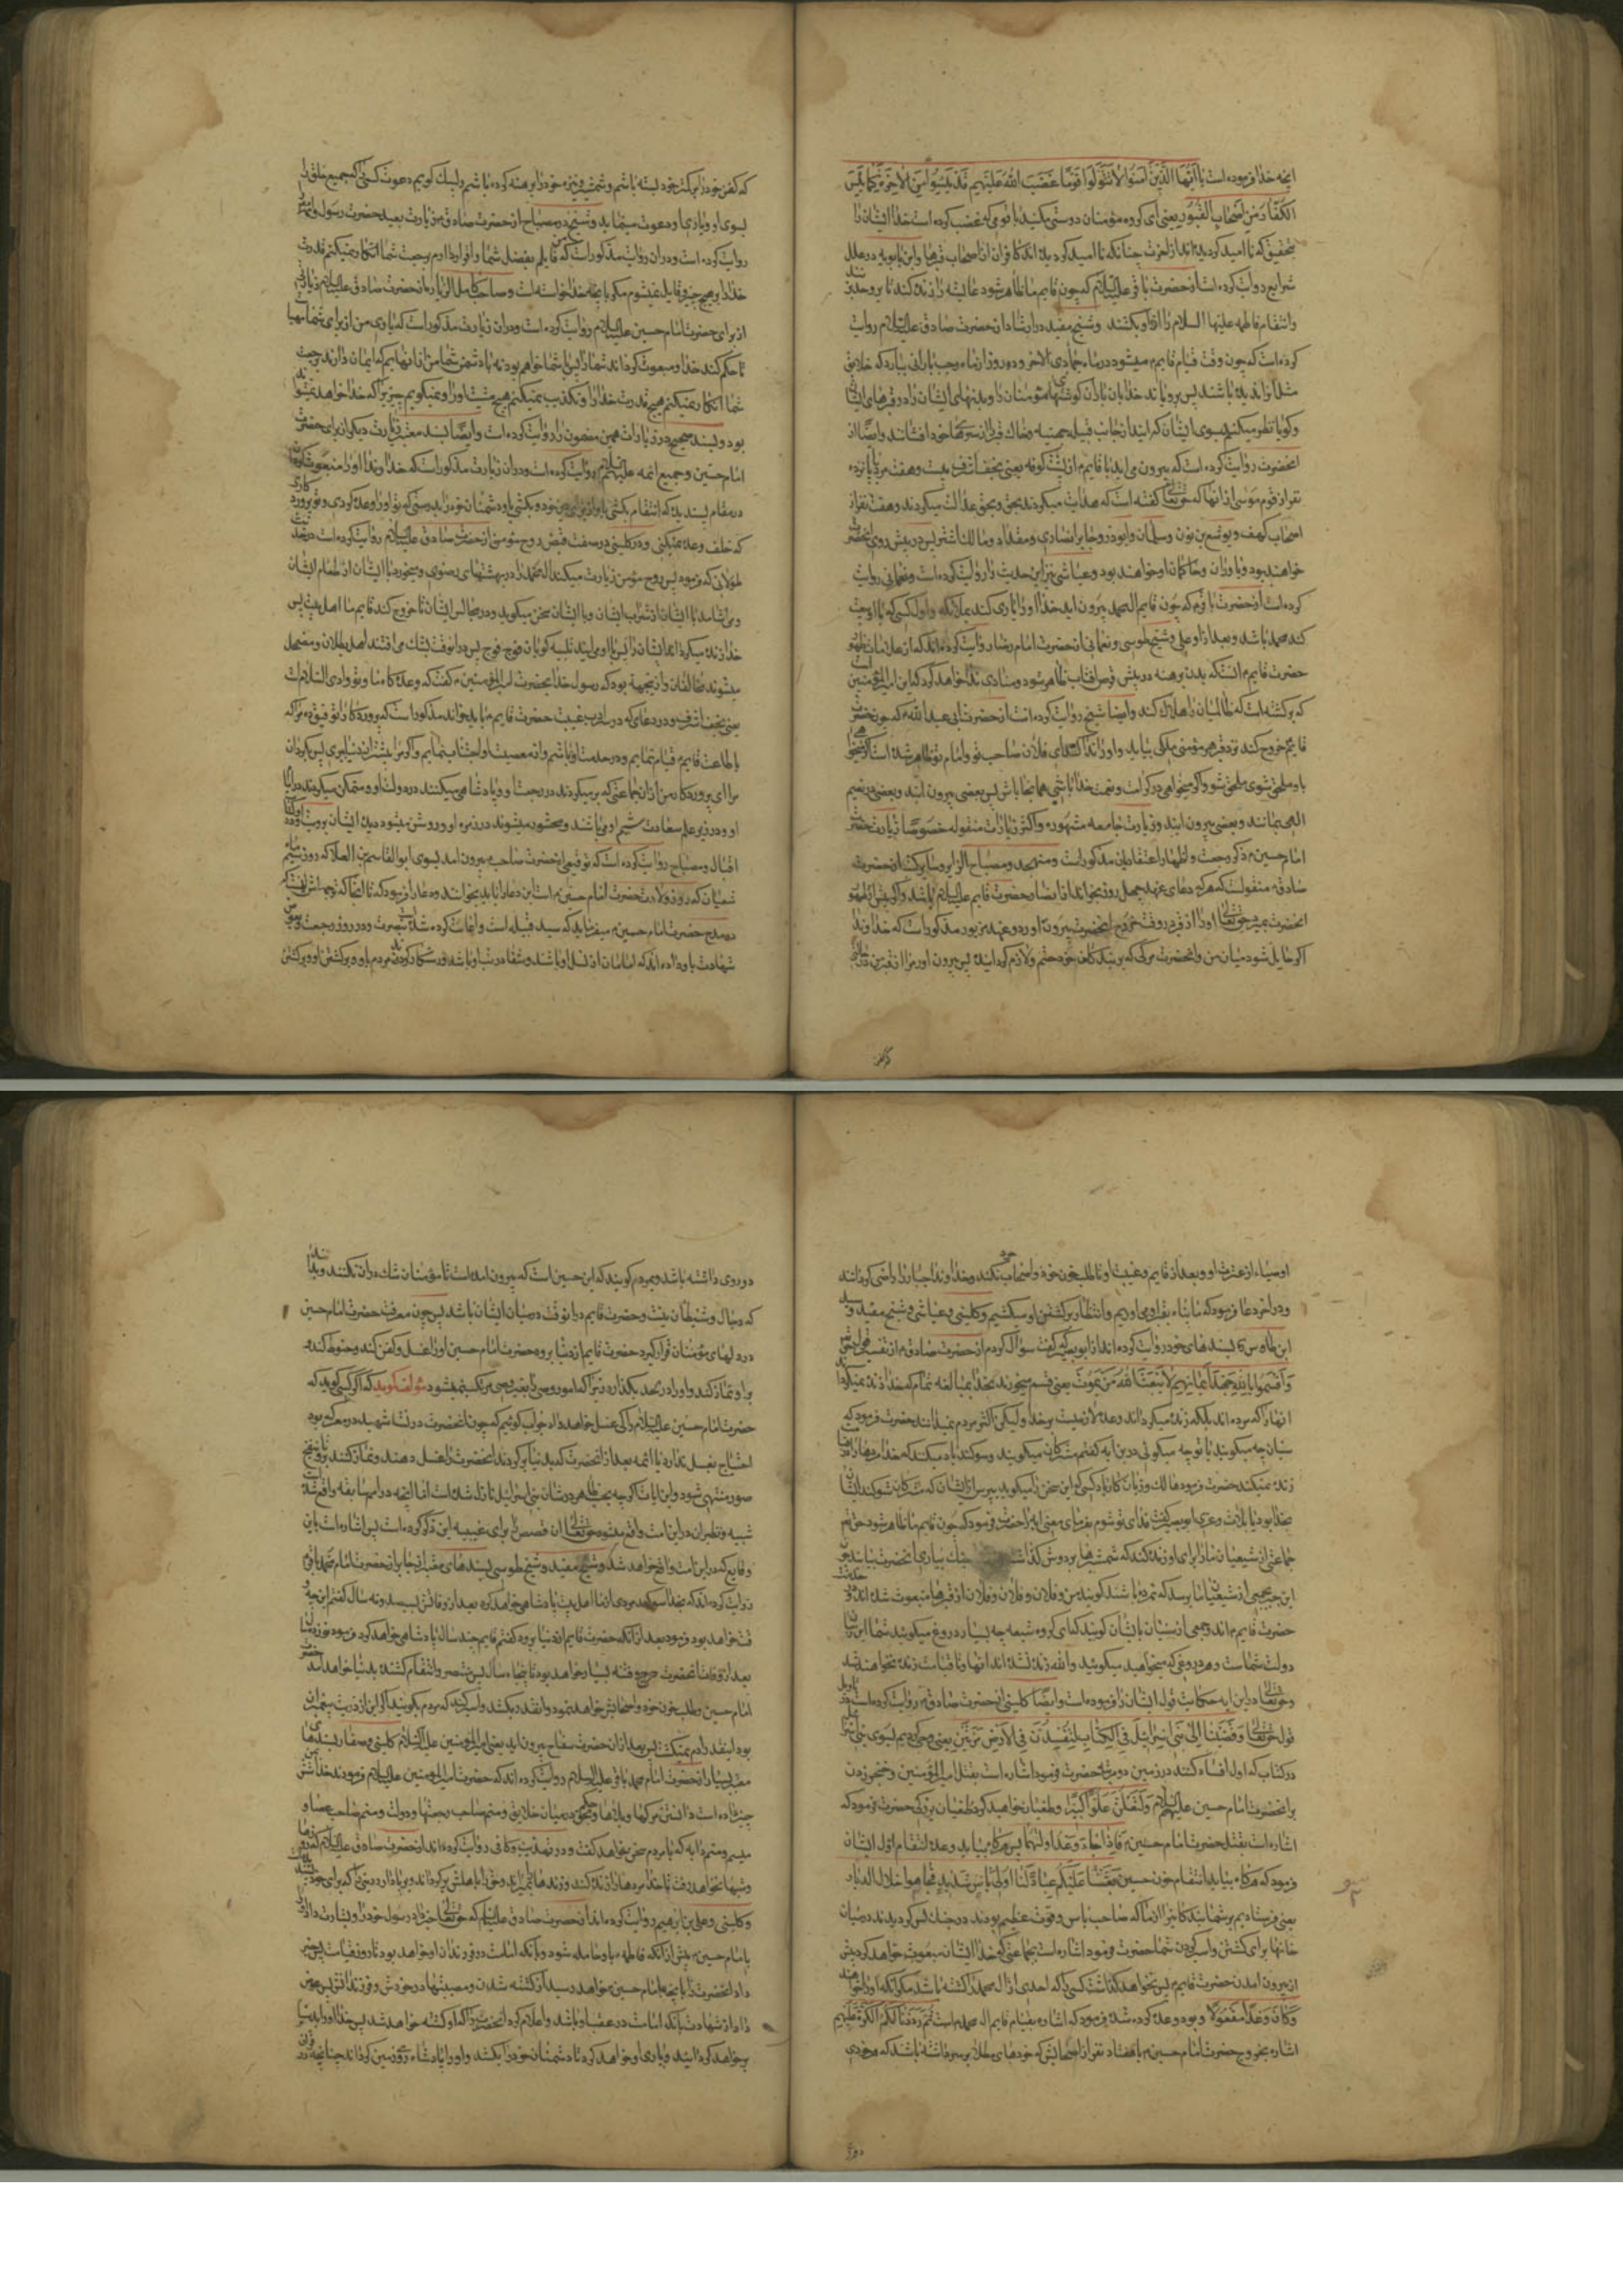 انچه خدا فرموده است یا ایها الذین امنوا لا تتولوا قوما غضب الله علیهم قد یئسوا من الاخرة کما یئس
الکفار من اصحاب القبور یعنی ای کروه مؤمنان دوستی مکنید با قومی که غضب کرده است خدا ایشان را
بتحقیق که نا امید کردیده اند از اخرت چنانکه نا امید کردیده اند کافران از اصحاب قبرها و ابن بابویه در علل
شرایع روایت کرده است از حضرت باقر علیه السلام که چون قایم ما ظاهر شود عایشه را زنده کند تا بر او حد بزند
و انتقام فاطمه علیها السلام را از او بکشد و شیخ مفید در ارشاد از حضرت صادق علیه السلام روایت
کرده است که چون وقت قیام قایم میشود در ماه جمادی الاخر و ده روز از ماه رجب بارانی ببارد که خلایق
مثل انرا ندیده باشند پس برویاند خدا بان باران کوشتهای مؤمنان را و بدنهای ایشان را در قبرهای ایشان
و کویا نظر میکنم بسوی ایشان که می ایند از جانب قبیله جهینه و خاک قبر از سرهای خود افشانند و ایضا از
انحضرت روایت کرده است که بیرون می اید با قایم از پشت کوفه یعنی نجف اشرف بیست و هفت مرد پانزده
نفر از قوم موسی از انها که حق تعالی کفته است که هدایت میکردند بحق و بحق عدالت میکردند و هفت نفر از
اصحاب کهف و یوشع بن نون و سلمان و ابوذر و جابر انصاری و مقداد و مالک اشتر پس در پیش روی انحضرت
خواهند بود و یاوران و حاکمان او خواهند بود و عیاشی نیز این حدیث را روایت کرده است و نعمانی روایت
کرده است از حضرت باقر که چون قایم ال محمد بیرون اید خدا او را یاری کند بملائکه و اول کسی که با او بیعت
کند محمد باشد و بعد از او علی و شیخ طوسی و نعمانی از حضرت امام رضا روایت کرده اند که از علامات ظهور
حضرت قایم انست که بدن برهنه در پیش قرص افتاب ظاهر شود و منادی ندا خواهد کرد که این امیر المؤمنین است
که برکشته است که ظالمان را هلاک کند و ایضا شیخ روایت کرده است از حضرت ابی عبد الله که چون حضرت
قایم خروج کند نزد قبر هر مؤمنی ملکی بیاید و او را ندا کند که ای فلان صاحب تو و امام تو ظاهر شده است اکر میخواهی
باو ملحق شوی ملحق شو و اکر میخواهی در کرامت و نعمت خدا باشی همانجا باش پس بعضی بیرون ایند و بعضی در نعیم
الهی بمانند و بعضی بیرون ایند و زیارت جامعه مشهوره و اکثر زیارات منقوله خصوصا زیارت حضرت
امام حسین ذکر رجعت و اظهار اعتقاد بان مذکور است و متهجد و مصباح الزایر و سایر کتب از حضرت
صادق منقولست که هر که دعای عهد چهل روز بخواند از انصار حضرت قایم علیه السلام باشد و اکر پیش از ظهور
انحضرت بمیرد حق تعالی او را از قبر در وقت خروج انحضرت بیرون اورد و در عهد مزبور مذکور است که خداوندا
اکر حایل شود میان من و انحضرت مرکی که بر بندکان خود حتم و لازم کردانیده پس بیرون اور مرا از قبر من در حالتی
که کفن خود را بر کمر خود بسته باشم و شمشیر و نیزه خود را برهنه کرده باشم و لبیک کویم دعوت کسی را که جمیع خلق را
بسوی او و یاری او دعوت مینماید و شیخ در مصباح از حضرت صادق زیارت بعید حضرت رسول و ائمه
روایت کرده است و در ان روایت مذکور است که من قایلم بفضل شما و اقرار دارم برجعت شما انکار نمیکنم قدرت
خدا را بر هیچ چیز و قایل نمیشوم مکر بانچه خدا خواسته است و صاحب کامل الزیاره از حضرت صادق علیه السلام زیارتی
از برای حضرت امام حسین علیه السلام روایت کرده است و در ان زیارت مذکور است که یاری من از برای شما مهیاست
تا حکم کند خدا و مبعوث کرداند شما را پس با شما خواهم بود نه با دشمن شما من از انهایم که ایمان دارند برجعت
شما انکار نمیکنم هیچ قدرت خدا را و تکذیب نمیکنم هیچ مشیت او را و نمیکویم چیزیرا که خدا خواهد نمیشود
بود و بسند صحیح در زیارات همین مضمون را روایت کرده است و ایضا بسند معتبر زیارت دیکر از برای حضرت
امام حسین و جمیع ائمه علیهم السلام روایت کرده است و در ان زیارت مذکور است که خداوندا او را مبعوث کردان
در مقام پسندیده که انتقام بکشی باو از برای دین خود و بکشی باو دشمنان خود را بدرستی که تو او را وعده کردی و تو پروردکاری
که خلف وعده نمیکنی و در کلینی در صفت قبض روح مؤمن از حضرت صادق علیه السلام روایت کرده است در حدیث
طولانی که فرمود پس روح مؤمن زیارت میکند ال محمد را در بهشتهای رضوی و میخورد با ایشان از طعام ایشان
و می اشامد با ایشان از شراب ایشان و با ایشان سخن میکوید و در مجالس ایشان تا خروج کند قایم ما اهل بیت پس
خدا زنده میکرداند ایشان را پس با او می ایند تلبیه کویان فوج فوج پس در انوقت بشک می افتند اهل بطلان و مضمحل
میشوند مخالفان و از انجهة بود که رسول خدا بحضرت امیر المؤمنین کفت که وعده کاه ما و تو وادی السلام است
یعنی نجف اشرف و در دعای که در سرداب غیبت حضرت قایم باید خواند مذکور است که پروردکارا توفیق ده مرا که
باطاعت قایم قیام نمایم و در خدمت او باشم و از معصیت او اجتناب نمایم و اکر مرا پیشتر از دنیا ببری پس بکردان
مرا ای پروردکار من از ان جماعتی که بر میکردند در رجعت او و پادشاهی میکنند در دولت او و متمکن میکردند در ایام
او و در زیر علم سعادت شیم او می باشند و محشور میشوند در زمره او و روشن میشود دیده ایشان برویت او و در
اقبال و مصباح روایت کرده است که توقیعی از حضرت صاحب بیرون امد بسوی ابو القاسم بن العلا که روز سیم ماه
شعبان که روز ولادت حضرت امام حسین است این دعا را باید بخوانند و دعا را فرمود که تا انجا که ترجمه اش اینست که
در مدح حضرت امام حسین میفرماید که سید قبیله است و اعانت کرده شده است بنصرت در روز رجعت و بعوض
شهادت باو داده اند که امامان از نسل او باشند و شفا در تربت او باشد و رستکار کردند مردم باو در برکشتن او و برکشتن
اوصیاء از عترت او و بعد از قایم و غیبت او تا طلب خون خود و اصحاب خود نکنند و خداوند جبار را راضی کردانند
و در اخر دعا فرمود که ما پناه بقبر او می اوریم و انتظار برکشتن او میکشیم و کلینی و عیاشی و شیخ مفید و سید
ابن طاوس بسندهای خود روایت کرده اند از ابو بصیر که کفت سؤال کردم از حضرت صادق از تفسیر قول حق
و اقسموا بالله جهد ایمانهم لا یبعث الله من یموت یعنی قسم میخورند بخدا بمبالغه تمام که خدا زنده نمیکرداند
انها را که مرده اند بلکه زنده میکرداند وعده لازمیست بر خدا ولیکن اکثر مردم نمیدانند حضرت فرمود که
سنیان چه میکویند یا تو چه میکوئی در این ایه کفتم مشرکان میکویند و سوکند یاد میکنند که خدا مردها را
زنده نمیکند حضرت فرمود هلاک و زیان کار باد کسی که این سخن را میکوید بپرس از ایشان که مشرکان سوکند ایشان
بخدا بود یا بلات و عزی ابو بصیر کفت فدای تو شوم بفرمای معنی ایه را حضرت فرمود که چون قایم ما ظاهر شود حق تعالی
جماعتی از شیعیان ما را برای او زنده کند که شمشیرها بر دوش کذاشته بیاری انحضرت بیایند چون
این خبر بجمعی از شیعیان ما برسد که نمرده باشند کویند من و فلان و فلان و فلان از قبرها مبعوث شده اند و در خدمت
حضرت قایم اند و جمعی از سنیان بایشان کویند که ای کروه شیعه چه بسیار دروغ میکویند شما این زمان
دولت شماست و هر دروغی که میخواهید میکویید والله زنده نشده اند انها و تا قیامت زنده نخواهند شد
و حق تعالی در این ایه حکایت قول ایشان را فرموده است و ایضا کلینی از حضرت صادق روایت کرده است در تاویل
قول حق تعالی و قضینا الی بنی اسرائیل فی الکتاب لتفسدن فی الارض مرتین یعنی وحی کردیم بسوی بنی اسرائیل
در کتاب که اول افساد کنند در زمین دو مرتبه حضرت فرمود اشاره است بقتل امیر المؤمنین و خنجر زدن
بر انحضرت امام حسن علیهم السلام و لتعلن علوا کبیرا و طغیان خواهید کرد طغیان بزرکی حضرت فرمود که
اشاره است بقتل حضرت امام حسین فاذا جاء وعد اولیهما پس هرکاه بیاید وعده انتقام اول ایشان
فرمود که هرکاه بیاید انتقام خون حسین بعثنا علیکم عبادا لنا اولی باس شدید فجاسوا خلال الدیار
یعنی فرستادیم بر شما بندکانی از ما که صاحب باس و قوت عظیم بودند در جنک پس کردیدند در میان
خانها برای کشتن و اسیر کردن شما حضرت فرمود اشاره است بجماعتی که خدا ایشان را مبعوث خواهد کرد پیش
از بیرون امدن حضرت قایم پس نخواهد کذاشت کسی را که احدی از ال محمد را کشته باشد مکر انکه او را خواهند
و کان وعدا مفعولا و بود وعده کرده شده فرمود که اشاره بقیام قایم ال محمد است ثم رددنا لکم الکرة علیهم
اشاره بخروج حضرت امام حسین با هفتاد نفر از اصحابش که خودهای مطلا بر سر داشته باشند که هر خودی
دو روی داشته باشد و بمردم کویند که این حسین است که بیرون امده است تا مؤمنان شک در ان نکنند و بدانند
که دجال و شیطان نیست و حضرت قایم در انوقت در میان ایشان باشد پس چون معرفت حضرت امام حسین
در دلهای مؤمنان قرار کیرد حضرت قایم از دنیا برود حضرت امام حسین او را غسل و کفن کند و حنوط کند
بر او نماز کند و او را در لحد بکذارد زیرا که امور وصی را بغیر وصی مرتکب نمیشود مؤلف کوید که اکر کسی کوید که
حضرت امام حسین علیه السلام را کی غسل خواهد داد جواب کوئیم که چون انحضرت در انجا شهید در معرکه بود
احتیاج بغسل ندارد یا ائمه بعد از انحضرت که بدنیا برکردند انحضرت را غسل دهند و نماز کنند تا بنفخ
صور منتهی شود و این ایات اکرچه بحسب ظاهر در شان بنی اسرائیل نازل شده است اما انچه در امم سابقه واقع شده
شبیه و نظیر ان در این امت واقع میشود حق تعالی ان قصص را برای تنبیه این ذکر کرده است پس اشاره است باین
وقایع که در این امت واقع خواهد شد و شیخ مفید و شیخ طوسی بسندهای معتبر از جابر از حضرت امام محمد باقر
روایت کرده اند که بخدا سوکند مردی از ما اهل بیت پادشاهی خواهد کرد بعد از وفاتش سیصد و نه سال کفتم این چه
وقت خواهد بود فرمود بعد از انکه حضرت قایم از دنیا برود کفتم قایم چند سال پادشاهی خواهد کرد فرمود نوزده سال
بعد از وفات انحضرت هرج و فتنه بسیار خواهد بود تا پنجاه سال پس منتصر و انتقام کشنده بدنیا خواهد امد
امام حسین و طلب خون خود و اصحابش خواهد نمود و انقدر بکشد و اسیر کند که مردم بکویند اکر این از ذریت پیغمبران
بود اینقدر ادم نمیکشت پس بعد از ان حضرت سفاح بیرون اید یعنی امیر المؤمنین علیه السلام کلینی و صفار بسندهای
معتبر بسیار از حضرت امام محمد باقر علیه السلام روایت کرده اند که حضرت امیر المؤمنین علیه السلام فرمودند خدا شش
چیز داده است دانستن مرکها و بلاها و حکم بحق در میان خلایق و منم صاحب رجعتها و دولت و منم صاحب عصا و
میسم و منم دابه که با مردم سخن خواهد کفت و در تهذیب و کافی روایت کرده اند از حضرت صادق علیه السلام که روزها
و شبها نخواهد رفت تا خدا مردها را زنده کند و زندها را بمیراند و حق را باهلش برکرداند و بر پا دارد دینی را که برای خود پسندیده
و کلینی و علی بن ابراهیم روایت کرده اند از حضرت صادق علیه السلام که حق تعالی خبر داد رسول خود را و بشارت داد او را
بامام حسین پیش از انکه فاطمه باو حامله شود و بانکه امامت در فرزندان او خواهد بود تا روز قیامت پس خبر
داد انحضرت را بانچه بامام حسین خواهد رسید از کشته شدن و مصیبتها در خودش و فرزندانش پس عوض
داد از شهادت بانکه امامت در عقب او باشد و اعلام کرد انحضرت را که او کشته خواهد شد پس خدا او را بدنیا
بر خواهد کردانید و یاری او خواهد کرد تا دشمنان خود را بکشد و او را پادشاه روی زمین کرداند چنانچه در قران